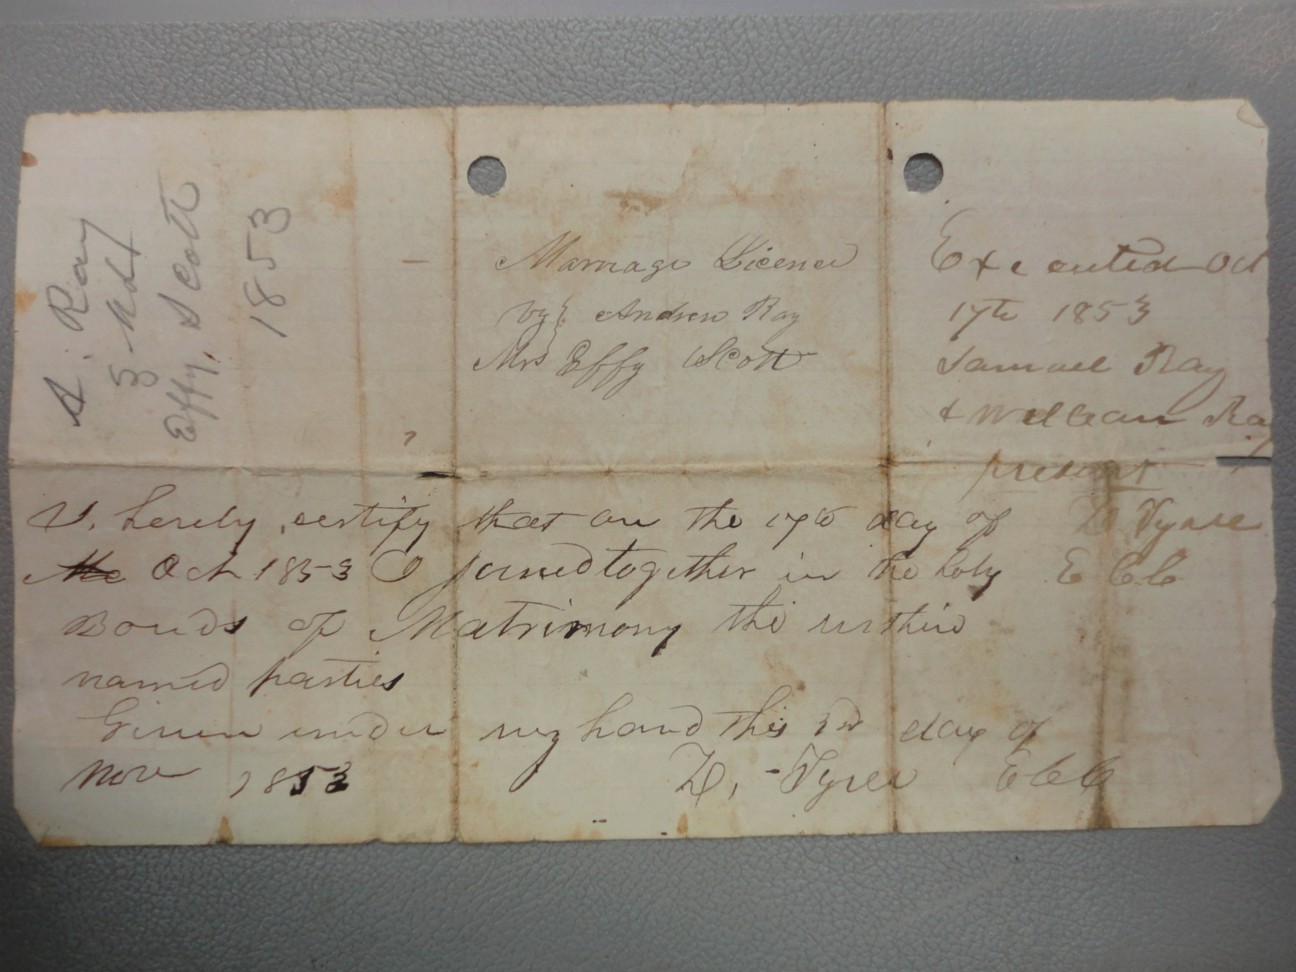 A. Ray
Effy, Scott
1853
Marriage Licence
vs } Andrew Ray
Mrs Effy Scott
Executed Oct
17th 1853
Samuel Ray
& William Ray
present
D Tyree
E CC
I, hereby certify that on the 17th day of
Oct 1853 I joined together in the holy
Bonds of Matrimony the within
named parties
Given under my hand this 1st day of
Nov 1853
D, Tyree E CC